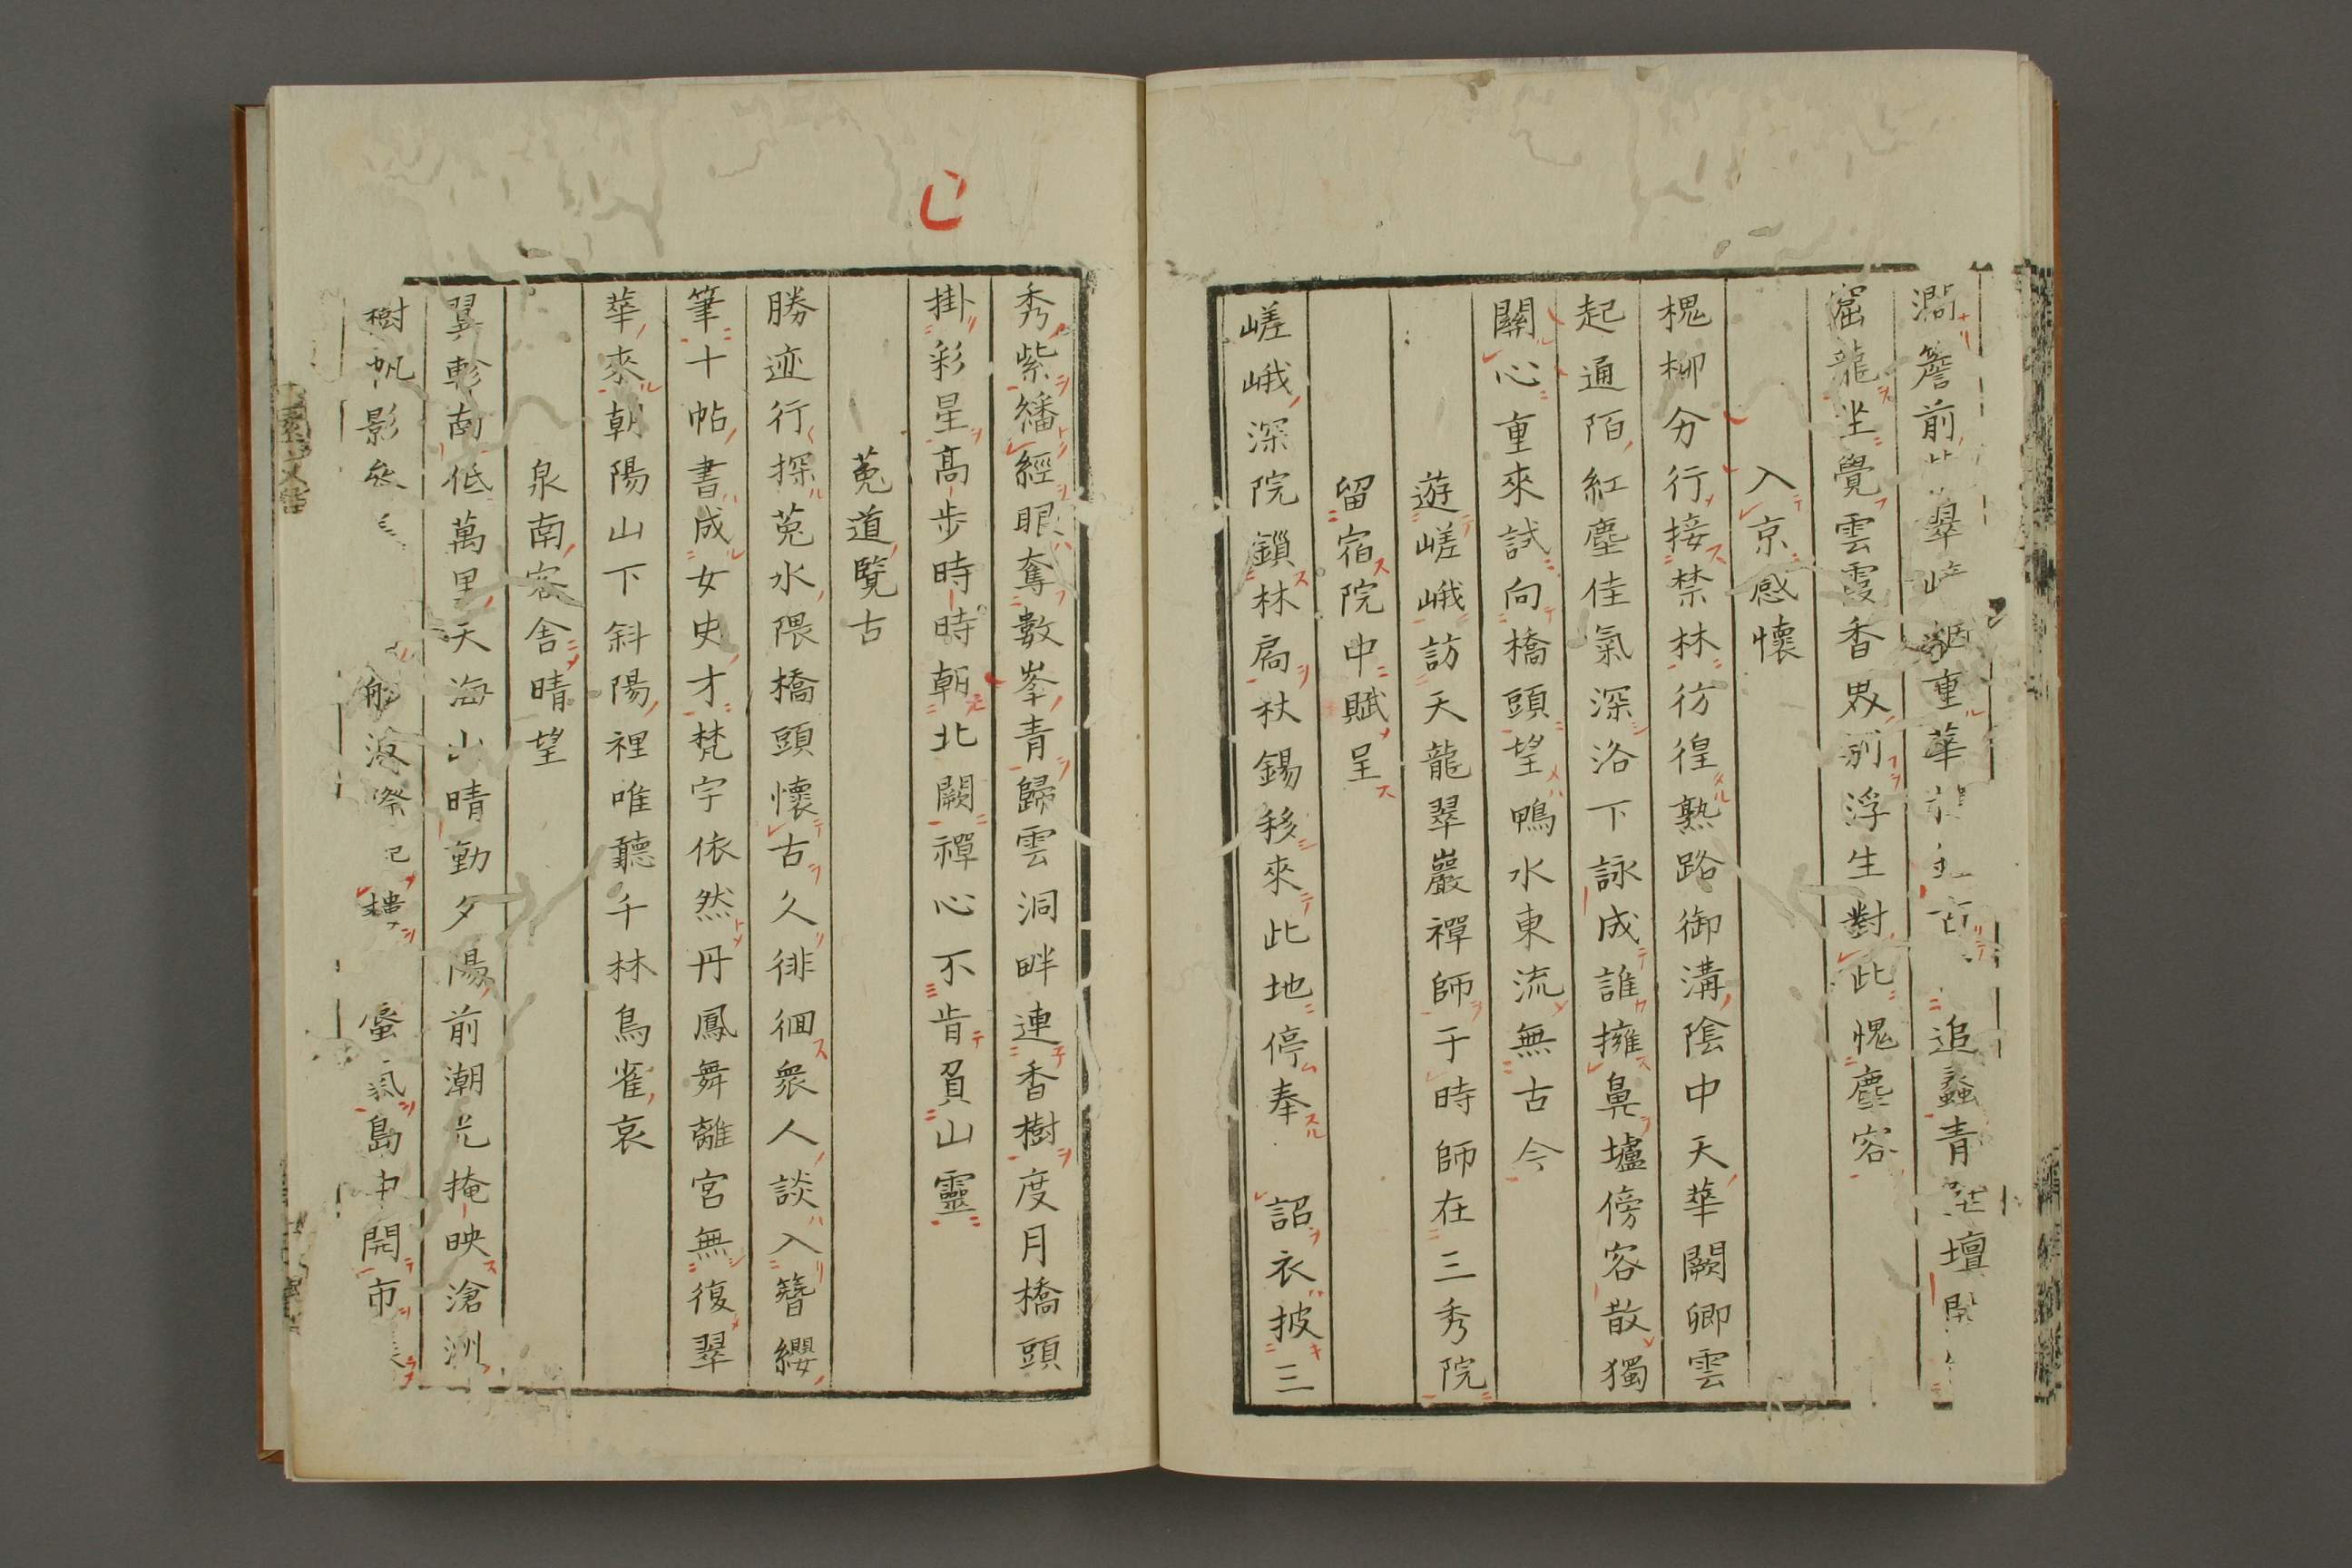 澗簷前翠重華追蠡青壇
窟龍坐覺雲霞香界別浮生對此愧塵容
入京感懷
槐柳分行接禁林彷徨熟路御溝陰中天華闕卿雲
起通陌紅塵佳氣深洛下詠成誰擁鼻壚傍客散獨
關心重來試向橋頭望鴨水東流無古今
遊嵯峨訪天龍翠巖禪師于時師在三秀院
留宿院中賦呈
嵯峨深院鎖林扃杖錫移來此地停奉 詔衣披三
秀紫繙經眼奪數峯青歸雲洞畔連香樹度月橋頭
掛彩星高步時時朝北闕禪心不肯負山靈
菟道覽古
勝迹行探菟水隈橋頭懷古久徘徊衆人談入簪纓
筆十帖書成女史才梵宇依然丹鳳舞離宮無復翠
華來朝陽山下斜陽裡唯聽千林鳥雀哀
泉南客舍晴望
翼軫南低萬里天海山晴動夕陽前潮光掩映滄洲
樹帆影船海樓蜃氣島中開市